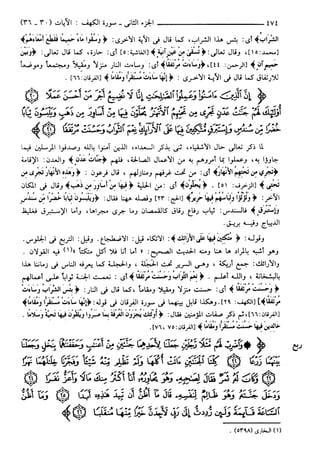 ٤٧٤ الجزء الثاني ـ سورة الكهف : الآيات (٣٠ ـ ٣٦)
الشَّرَابُ﴾ أي: بئس هذا الشراب، كما قال في الآية الأخرى: ﴿وَسُقُوا مَاءً حَمِيمًا فَقَطَّعَ أَمْعَاءَهُمْ﴾
[محمد: ١٥]، وقال تعالى: ﴿تُسْقَى مِنْ عَيْنٍ آنِيَةٍ﴾ [الغاشية: ٥] أي: حارة، كما قال تعالى: ﴿وَبَيْنَ
حَمِيمٍ آنٍ﴾ [الرحمن: ٤٤]، ﴿وَسَاءَتْ مُرْتَفَقًا﴾ أي: وساءت النار منزلاً ومقيلاً ومجتمعاً وموضعاً
للارتفاق كما قال في الآية الأخرى: ﴿إِنَّهَا سَاءَتْ مُسْتَقَرًّا وَمُقَامًا﴾ [الفرقان: ٦٦].
﴿إِنَّ الَّذِينَ آمَنُوا وَعَمِلُوا الصَّالِحَاتِ إِنَّا لَا نُضِيعُ أَجْرَ مَنْ أَحْسَنَ عَمَلًا ﴿٣٠﴾
أُولَئِكَ لَهُمْ جَنَّاتُ عَدْنٍ تَجْرِي مِنْ تَحْتِهِمُ الْأَنْهَارُ يُحَلَّوْنَ فِيهَا مِنْ أَسَاوِرَ مِنْ ذَهَبٍ وَيَلْبَسُونَ ثِيَابًا
خُضْرًا مِنْ سُنْدُسٍ وَإِسْتَبْرَقٍ مُتَّكِئِينَ فِيهَا عَلَى الْأَرَائِكِ نِعْمَ الثَّوَابُ وَحَسُنَتْ مُرْتَفَقًا ﴿٣١﴾﴾
لما ذكر تعالى حال الأشقياء، ثنى بذكر السعداء، الذين آمنوا بالله وصدقوا المرسلين فيما
جاؤوا به، وعملوا بما أمروهم به من الأعمال الصالحة، فلهم ﴿جَنَّاتُ عَدْنٍ﴾ والعدن: الإقامة
﴿تَجْرِي مِنْ تَحْتِهِمُ الْأَنْهَارُ﴾ أي: من تحت غرفهم ومنازلهم، قال فرعون: ﴿وَهَذِهِ الْأَنْهَارُ تَجْرِي مِنْ
تَحْتِي﴾ [الزخرف: ٥١]. ﴿يُحَلَّوْنَ﴾ أي: من الحلية ﴿فِيهَا مِنْ أَسَاوِرَ مِنْ ذَهَبٍ﴾ وقال في المكان
الآخر: ﴿وَلُؤْلُؤًا وَلِبَاسُهُمْ فِيهَا حَرِيرٌ﴾ [الحج: ٢٣] وفصله ههنا فقال: ﴿وَيَلْبَسُونَ ثِيَابًا خُضْرًا مِنْ سُنْدُسٍ
وَإِسْتَبْرَقٍ﴾ فالسندس: ثياب رفاع رقاق كالقمصان وما جرى مجراها، وأما الإستبرق فغليظ
الديباج وفيه بريق.
وقوله: ﴿مُتَّكِئِينَ فِيهَا عَلَى الْأَرَائِكِ﴾: الاتكاء قيل: الاضطجاع. وقيل: التربع في الجلوس.
وهو أشبه بالمراد ها هنا ومنه الحديث الصحيح: «أما أنا فلا آكل متكئاً»(١) فيه القولان.
والأرائك: جمع أريكة، وهي السرير تحت الحجلة، والحجلة كما يعرفه الناس في زماننا هذا
بالبشخانة، والله أعلم. ﴿نِعْمَ الثَّوَابُ وَحَسُنَتْ مُرْتَفَقًا﴾ أي: نعمت الجنة ثواباً على أعمالهم
﴿وَحَسُنَتْ مُرْتَفَقًا﴾ أي: حسنت منزلاً ومقيلاً ومقاماً، كما قال في النار: ﴿بِئْسَ الشَّرَابُ وَسَاءَتْ
مُرْتَفَقًا﴾ [الكهف: ٢٩]. وهكذا قابل بينهما في سورة الفرقان في قوله: ﴿إِنَّهَا سَاءَتْ مُسْتَقَرًّا وَمُقَامًا﴾
[الفرقان: ٦٦]، ثم ذكر صفات المؤمنين فقال: ﴿أُولَئِكَ يُجْزَوْنَ الْغُرْفَةَ بِمَا صَبَرُوا وَيُلَقَّوْنَ فِيهَا تَحِيَّةً وَسَلَامًا.
خَالِدِينَ فِيهَا حَسُنَتْ مُسْتَقَرًّا وَمُقَامًا﴾ [الفرقان: ٧٥، ٧٦].
ربع
﴿وَاضْرِبْ لَهُمْ مَثَلًا رَجُلَيْنِ جَعَلْنَا لِأَحَدِهِمَا جَنَّتَيْنِ مِنْ أَعْنَابٍ وَحَفَفْنَاهُمَا بِنَخْلٍ وَجَعَلْنَا بَيْنَهُمَا
زَرْعًا ﴿٣٢﴾ كِلْتَا الْجَنَّتَيْنِ آتَتْ أُكُلَهَا وَلَمْ تَظْلِمْ مِنْهُ شَيْئًا وَفَجَّرْنَا خِلَالَهُمَا نَهَرًا
﴿٣٣﴾ وَكَانَ لَهُ ثَمَرٌ فَقَالَ لِصَاحِبِهِ وَهُوَ يُحَاوِرُهُ أَنَا أَكْثَرُ مِنْكَ مَالًا وَأَعَزُّ نَفَرًا ﴿٣٤﴾
وَدَخَلَ جَنَّتَهُ وَهُوَ ظَالِمٌ لِنَفْسِهِ قَالَ مَا أَظُنُّ أَنْ تَبِيدَ هَذِهِ أَبَدًا ﴿٣٥﴾ وَمَا أَظُنُّ
السَّاعَةَ قَائِمَةً وَلَئِنْ رُدِدْتُ إِلَى رَبِّي لَأَجِدَنَّ خَيْرًا مِنْهَا مُنْقَلَبًا ﴿٣٦﴾﴾
(١) البخاري (٥٣٩٨).